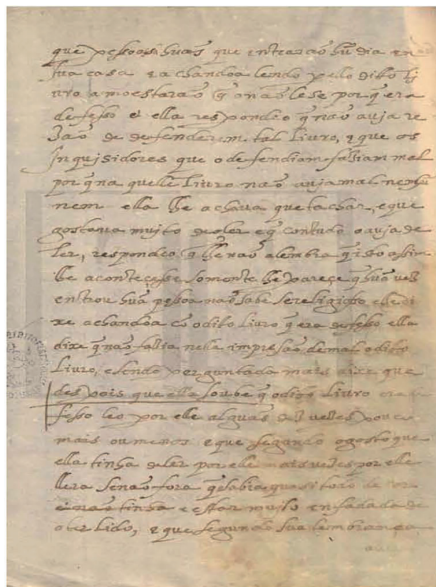 que pessoas huas que entrarão hũ dia en
sua casa e achandoa lendo pelo dito li
uro amoestarão q̃ o não lese por q̃ era
defeso e ella respondeo q̃ não auja re
zão de defenderem tal liuro, e que os
Inquisidores que o defendiam fazião mal
por q̃ na quelle liuro não auja mal nenhũ
nem ella lhe achaua que tachar, e que
gostaua mujto de o ler e q̃ contudo o auja de
ler, respondeo q̃ lhe não alembra q̃ isto asim
lhe acontecese somente lhe parece q̃ hũa uez
entrou hũa pesoa não sabe se religioso e lhe di
xe achandoa cõ o dito liuro q̃ era defeso ella
dixe q̃ não fazia nella impresão de mal o dito
liuro, e sendo perguntada mais dixe que
despois que ella soube q̃ o dito liuro era
feso leo por elle algũas uezes pouco
mais ou menos e que segundo o gosto que
ella tinha de ler por elle mais uezes por elle
lera senão fora q̃ sabia quasi todo de cor
e não tinha e estar mujto enfadada de
o ter lido, e que segundo sua lembrança